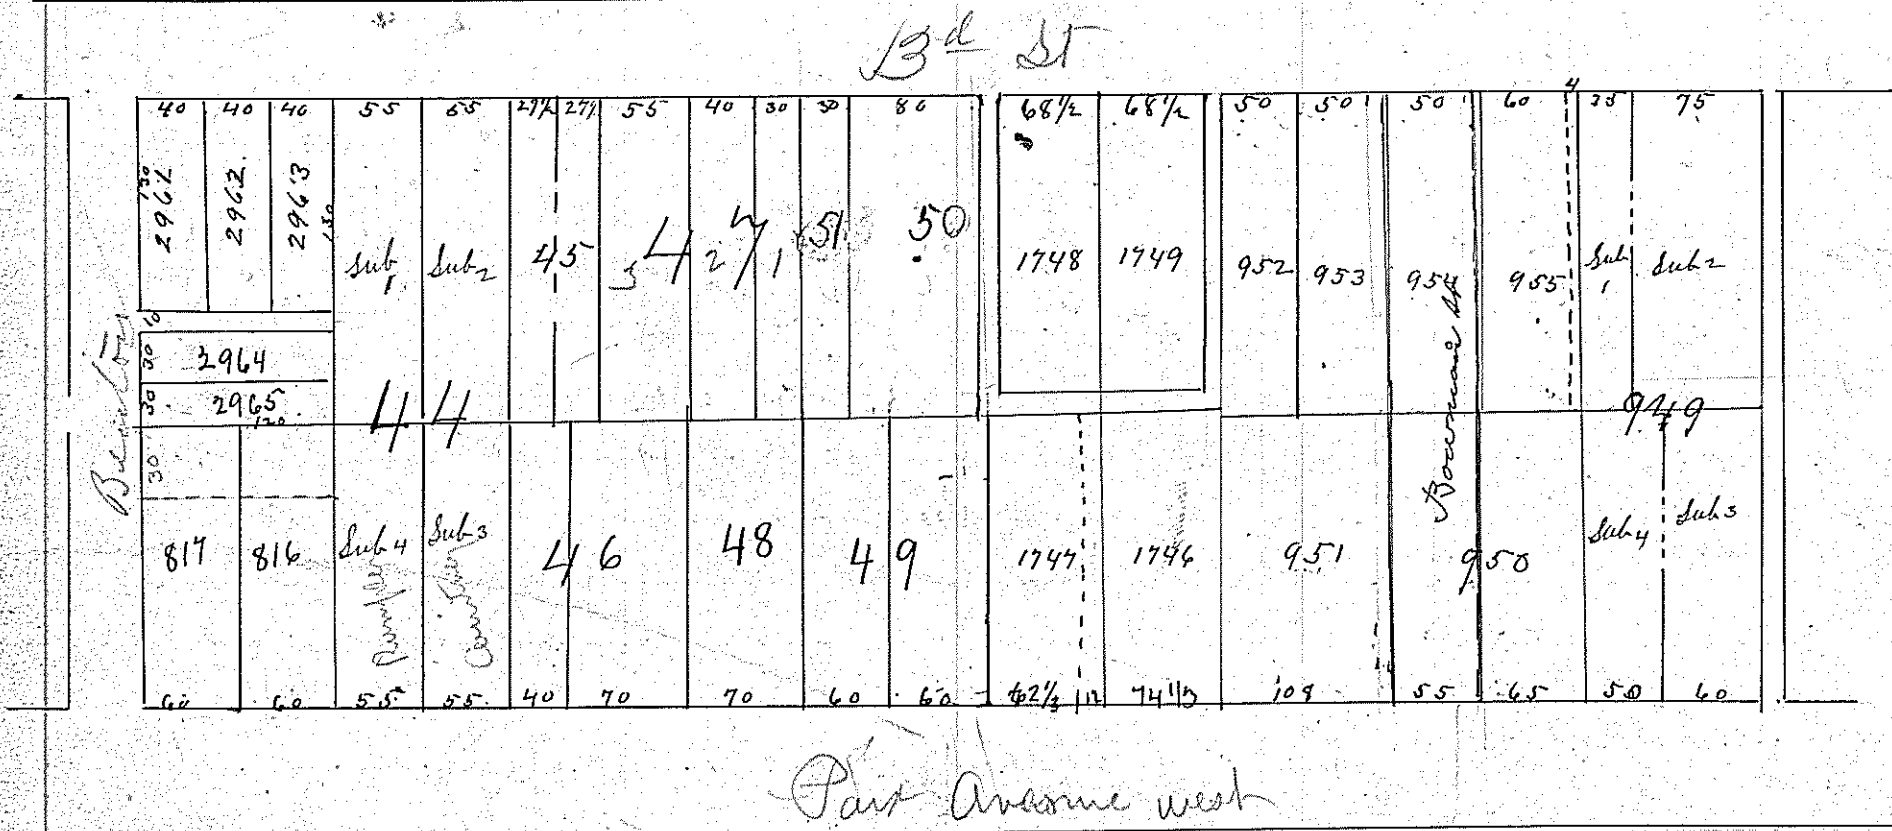 3d St
40 40 40 55 55 27½ 27½ 55 40 30 30 80 68½ 68½ 50 50 50 60 4 25 75
130
2961 2962 2963
130
Sub 1 Sub 2 45 3 47 2 1 51 50 1748 1749 952 953 954 955 Sub 1 Sub 2
10
30 2964
30 2965
120
44 949
30
817 816 Sub 4 Sub 3 46 48 49 1747 1746 951 950 Sub 4 Sub 3
Bowman St
60 60 55 55 40 70 70 60 60 62⅓ 12 74⅓ 108 55 65 50 60
Park Avenue west